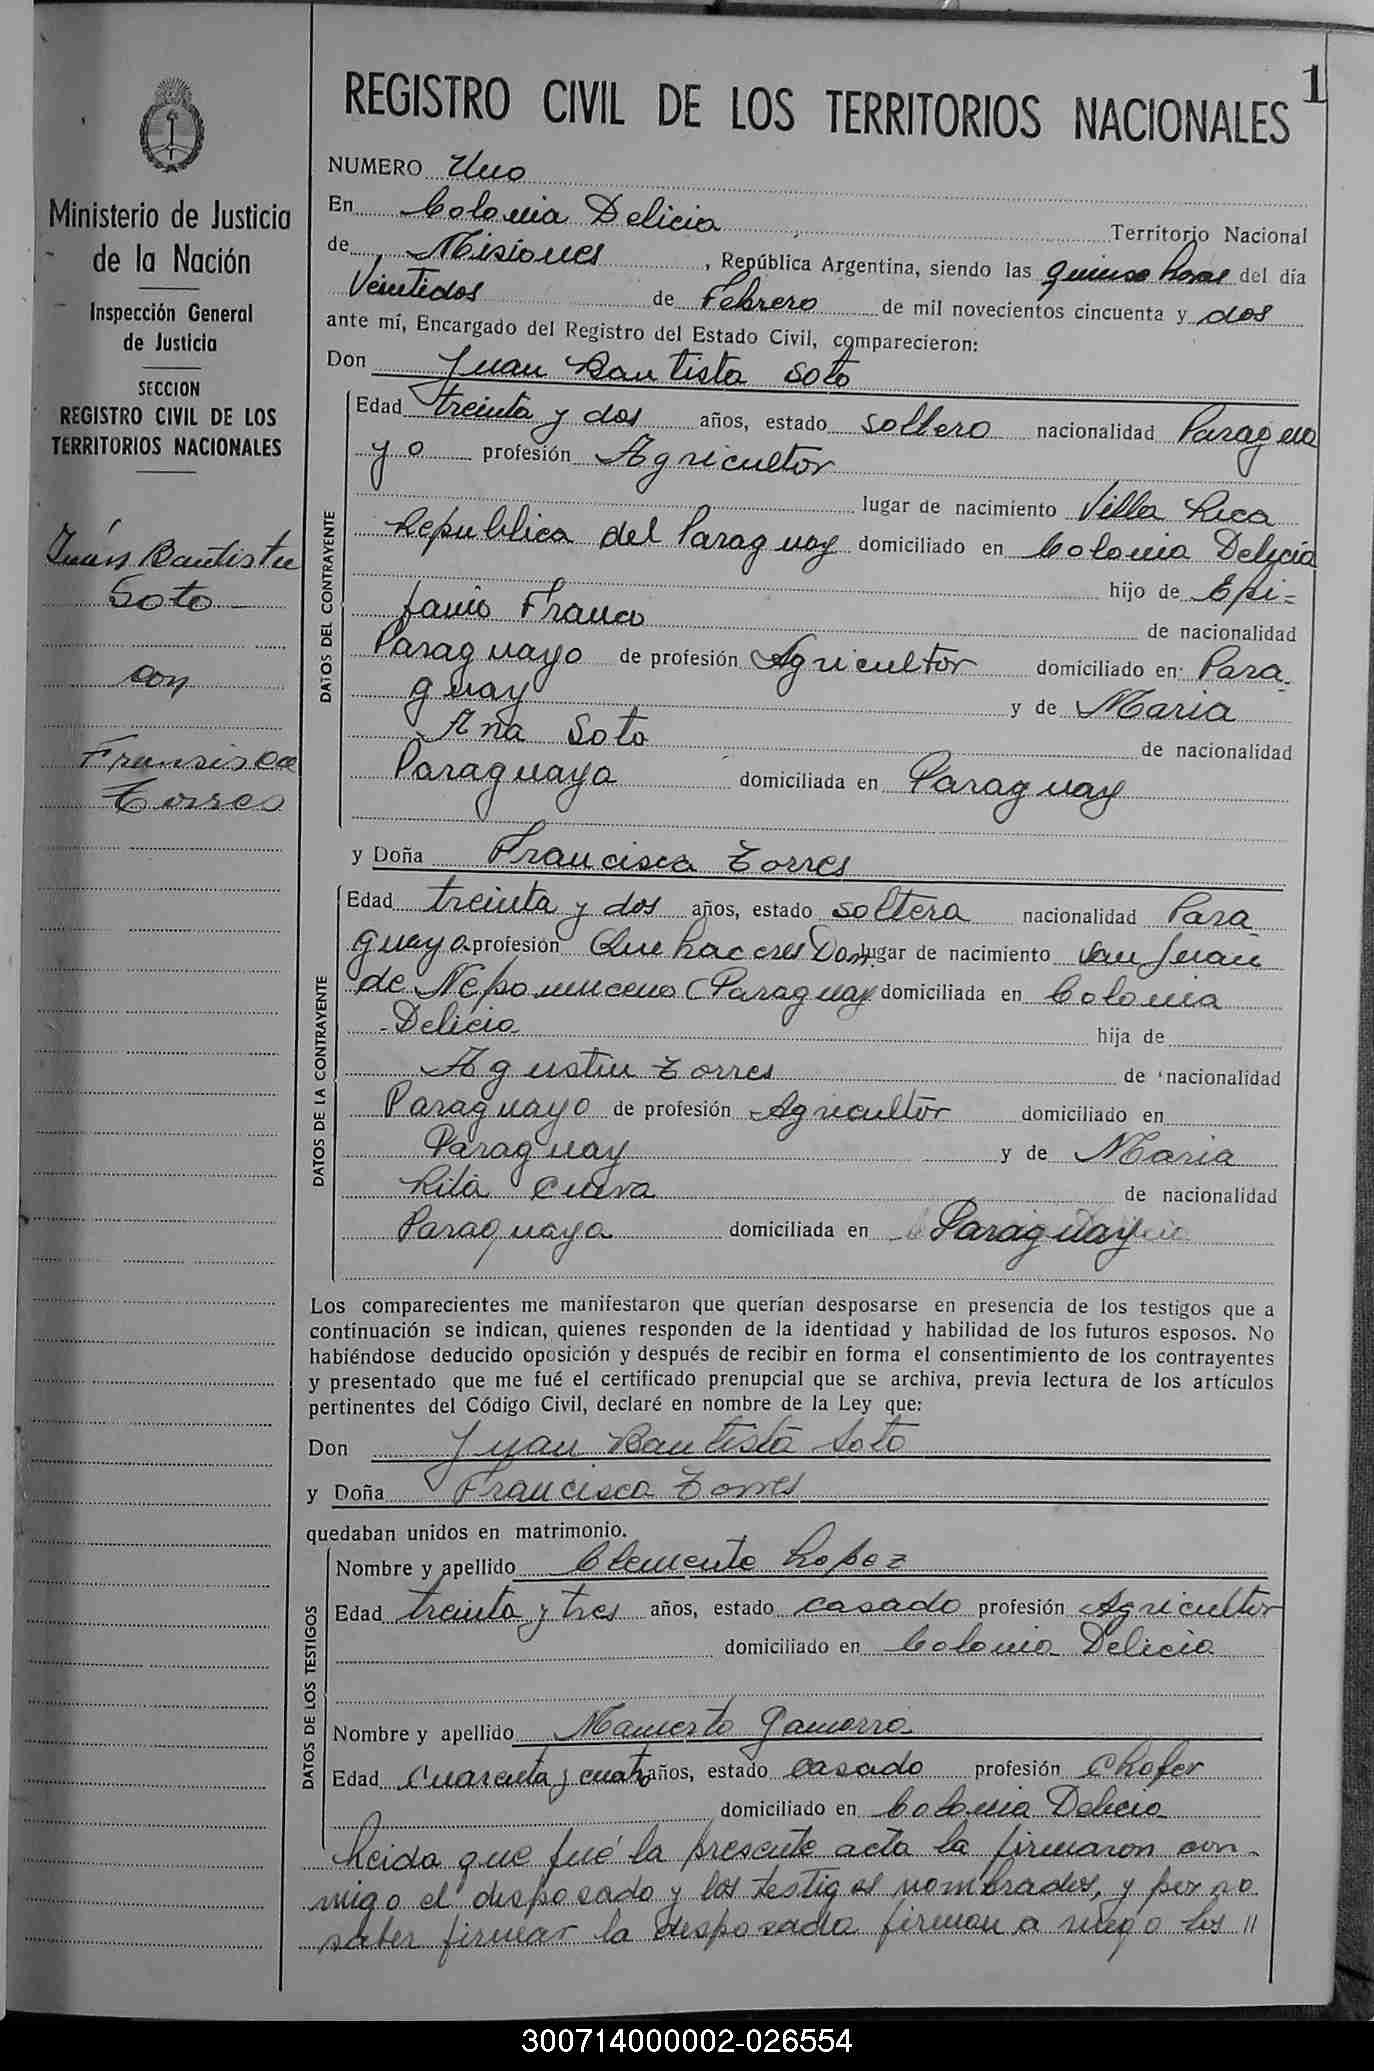 1
REGISTRO CIVIL DE LOS TERRITORIOS NACIONALES
Ministerio de Justicia
de la Nación
Inspección General
de Justicia
SECCION
REGISTRO CIVIL DE LOS
TERRITORIOS NACIONALES
Juán Bautista
Soto
con
Fransisca
Torres
NUMERO Uno
En Colonia Delicia Territorio Nacional
de Misiones, República Argentina, siendo las quinse horas del día
Veintidos de Febrero de mil novecientos cincuenta y dos
ante mí, Encargado del Registro del Estado Civil, comparecieron:
Don Juan Bautista Soto
DATOS DEL CONTRAYENTE
Edad treinta y dos años, estado soltero nacionalidad Paragua
yo profesión Agricultor
lugar de nacimiento Villa Rica
Republica del Paraguay domiciliado en Colonia Delicia
hijo de Epi=
fanio Franco de nacionalidad
Paraguayo de profesión Agricultor domiciliado en Para-
guay y de Maria
Ana Soto de nacionalidad
Paraguaya domiciliada en Paraguay
y Doña Francisca Torres
DATOS DE LA CONTRAYENTE
Edad treinta y dos años, estado soltera nacionalidad Para
guaya profesión Que haceres Dom. lugar de nacimiento San Juan
de Nepomuceno (Paraguay domiciliada en Colonia
Delicia hija de
Agustin Torres de nacionalidad
Paraguayo de profesión Agricultor domiciliado en
Paraguay y de Maria
Rita Cueva de nacionalidad
Paraguaya domiciliada en Paraguay
Los comparecientes me manifestaron que querían desposarse en presencia de los testigos que a
continuación se indican, quienes responden de la identidad y habilidad de los futuros esposos. No
habiéndose deducido oposición y después de recibir en forma el consentimiento de los contrayentes
y presentado que me fué el certificado prenupcial que se archiva, previa lectura de los artículos
pertinentes del Código Civil, declaré en nombre de la Ley que:
Don Juan Bautista Soto
y Doña Francisca Torres
quedaban unidos en matrimonio.
DATOS DE LOS TESTIGOS
Nombre y apellido Clemente Lopez
Edad treinta y tres años, estado casado profesión Agricultor
domiciliado en Colonia Delicia
Nombre y apellido Mamerto Gamarra
Edad cuarenta y cuatro años, estado casado profesión Chofer
domiciliado en Colonia Delicia
Leida que fué la presente acta la firmaron con-
migo el desposado y los testigos nombrados, y por no
saber firmar la desposada firman a ruego los "
300714000002-026554